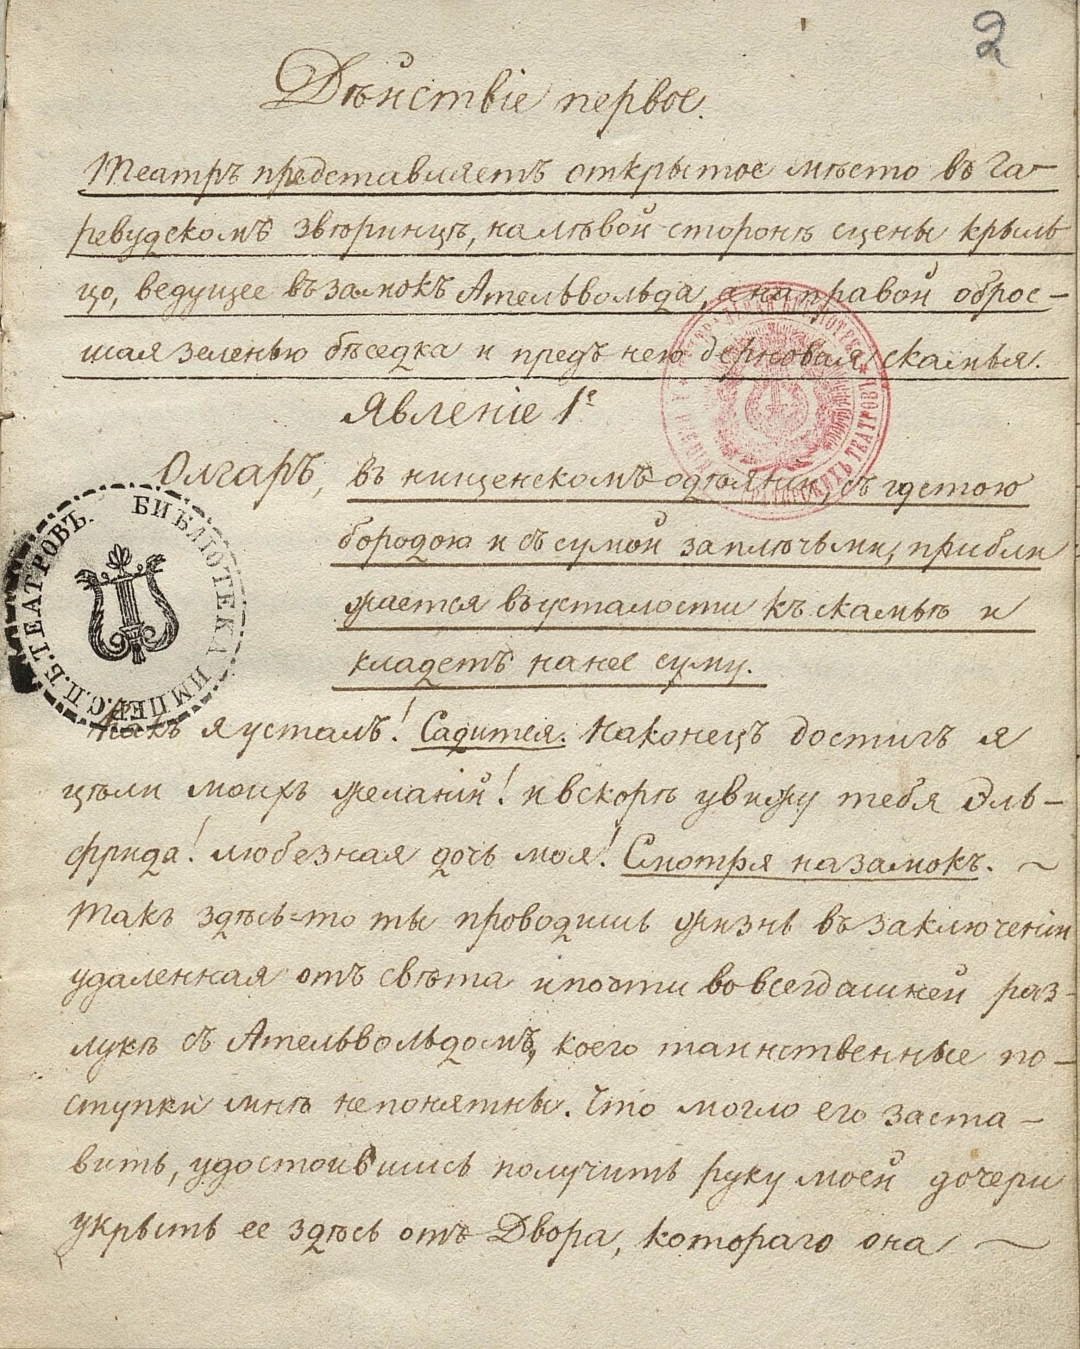 2
Дѣйствіе первое.
Театръ представляетъ открытое мѣсто въ Га-
ревудскомъ звѣринцѣ, на лѣвой сторонѣ сцены крыль
цо, ведущее въ замокъ Ательвольда, а на правой оброс-
шая зеленью бѣседка и предъ нею дерновая скамья.
Явленіе 1е
Олгаръ, въ нищенскомъ одѣяніи, съ густою
бородою и съ сумой за плечьми, прибли
жается въ усталости къ скамьѣ и
кладетъ на нее суму.
БИБЛІОТЕКА ИМПЕР. С.П.Б. ТЕАТРОВЪ.
Какъ я усталъ! Садится. Наконецъ достигъ я
цѣли моихъ желаній! и вскорѣ увижу тебя Эль-
фрида! любезная дочь моя! Смотря на замокъ. ~
Такъ здѣсь-то ты проводишь жизнь въ заключеніи
удаленная отъ свѣта и почти во всегдашней раз-
лукѣ съ Ательвольдомъ, коего таинственные по-
ступки мнѣ непонятны. Что могло его заста-
вить, удостоившись получить руку моей дочери
укрыть ее здѣсь отъ Двора, котораго она ~